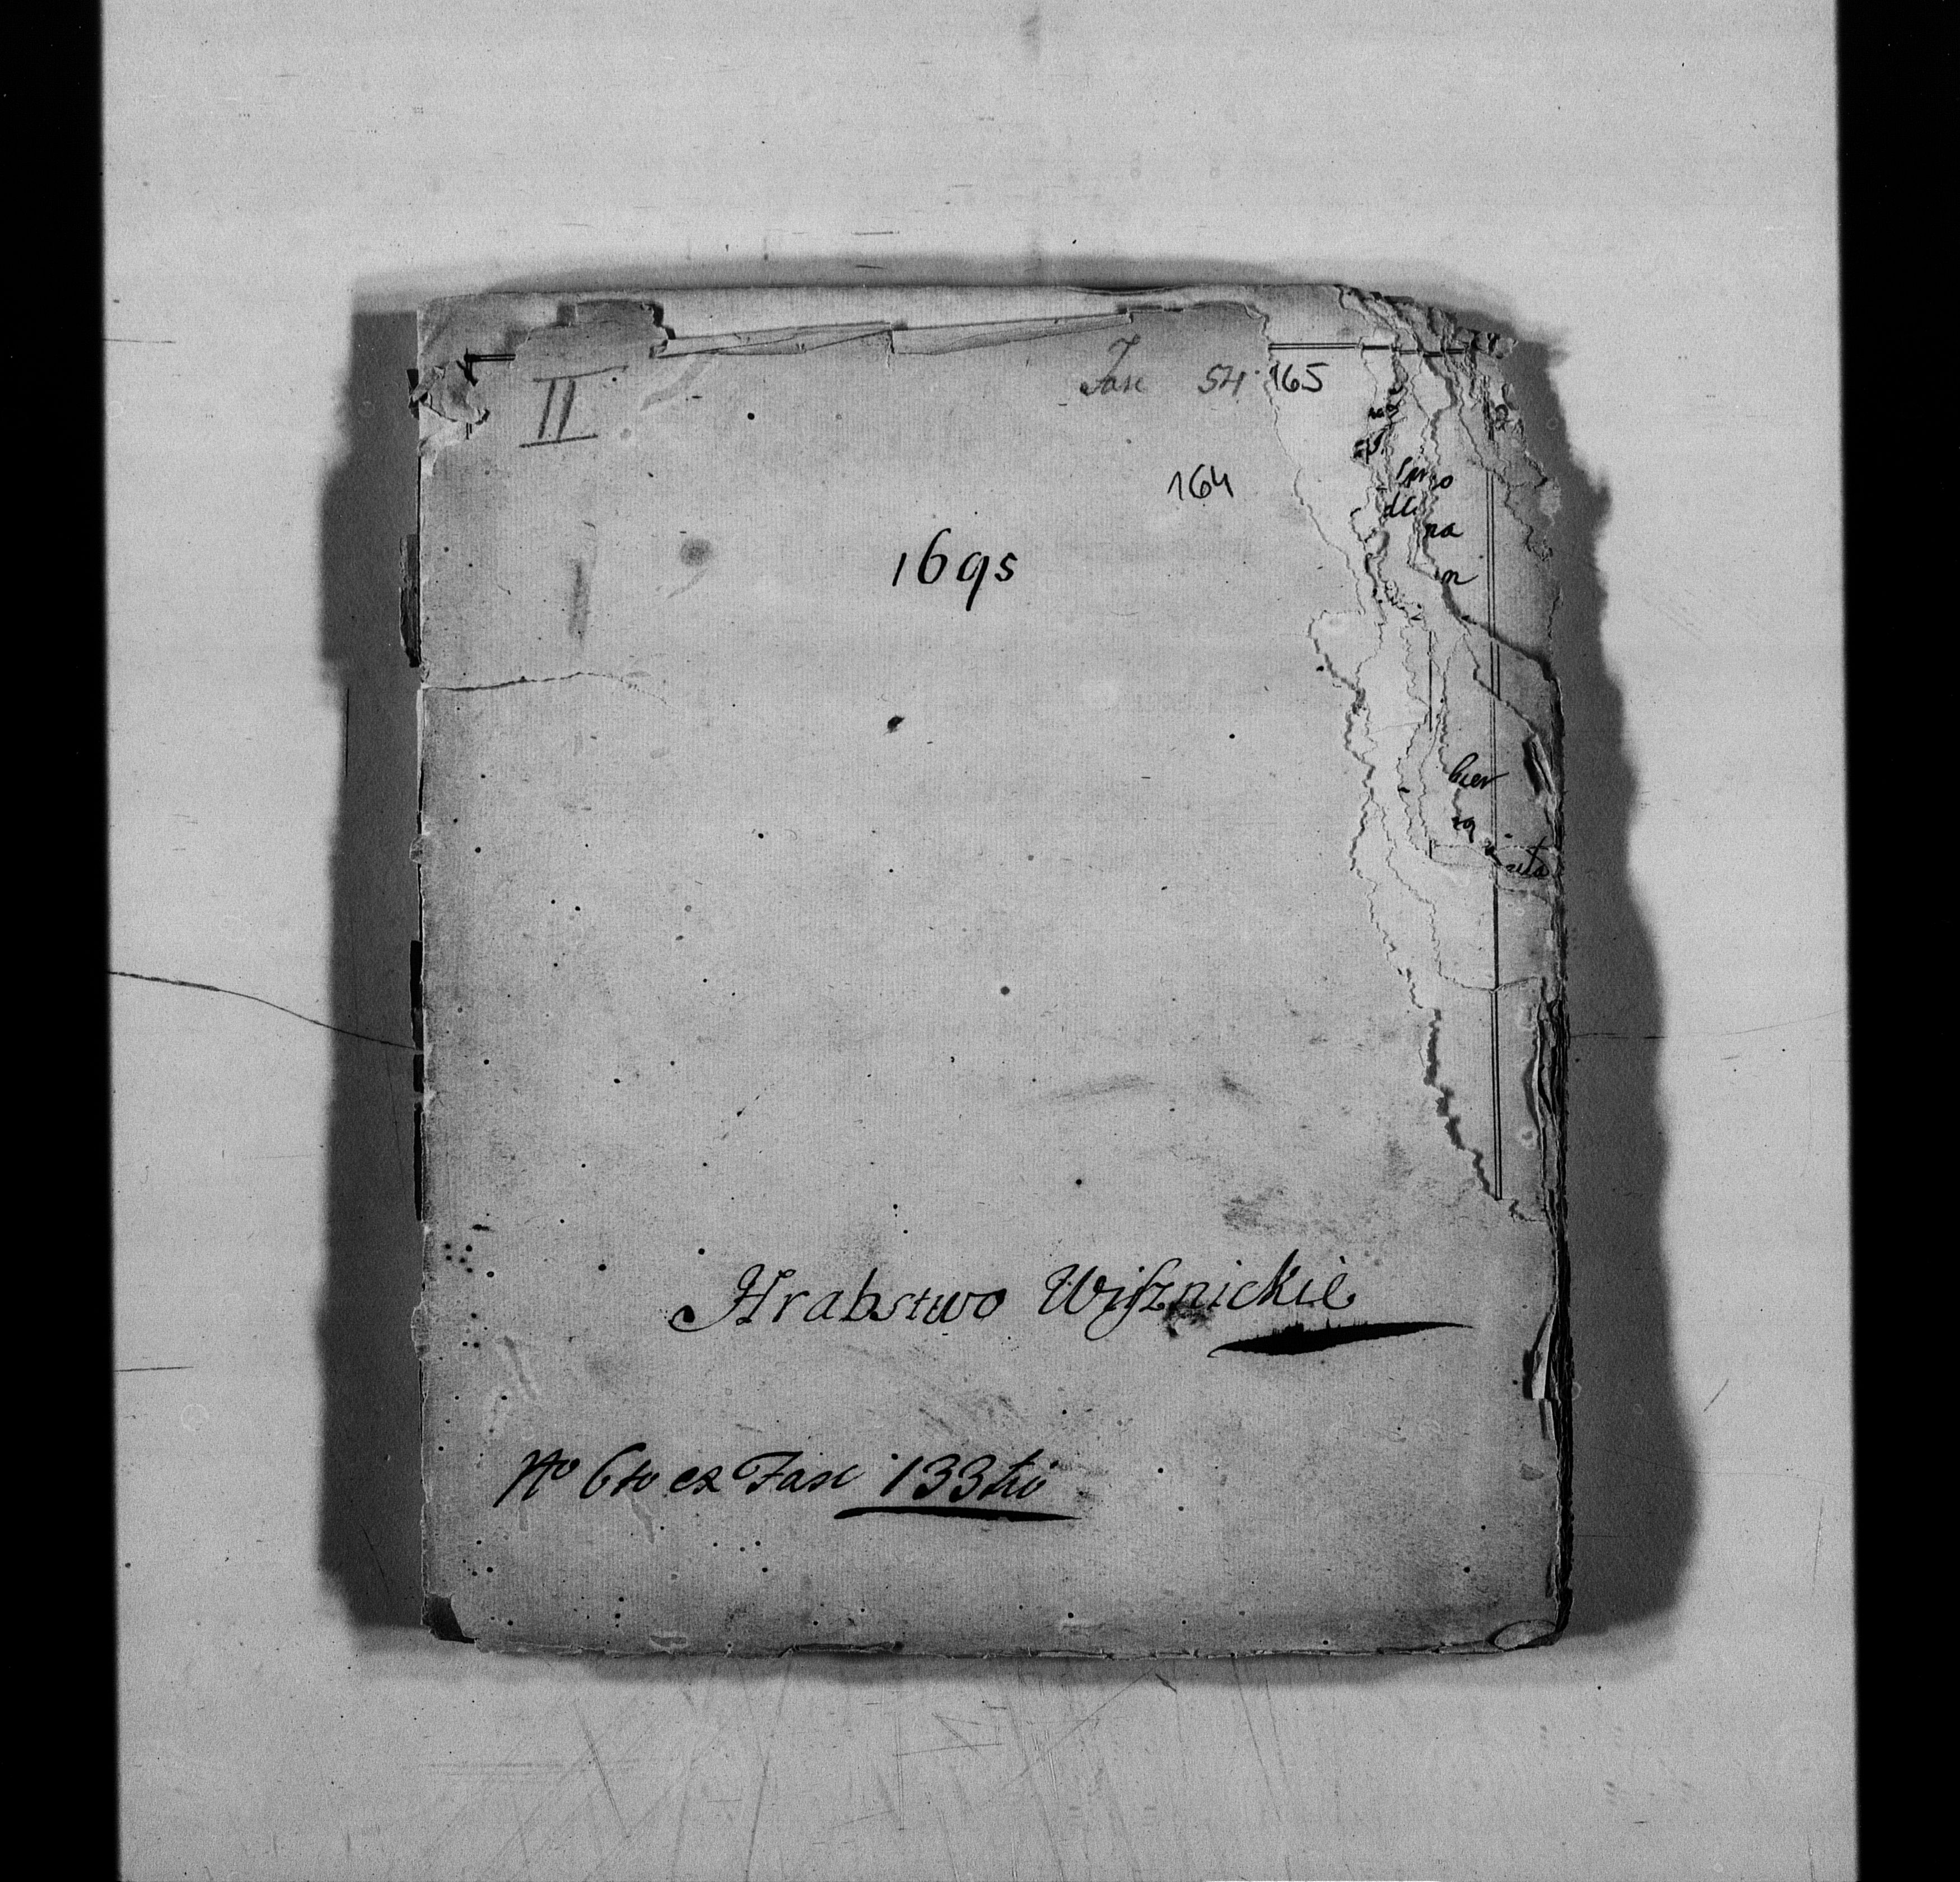 II
Fasc 54 165
164
1695
na
Hrabstwo Wiſznickie
No 6to ex Fasc 133tio